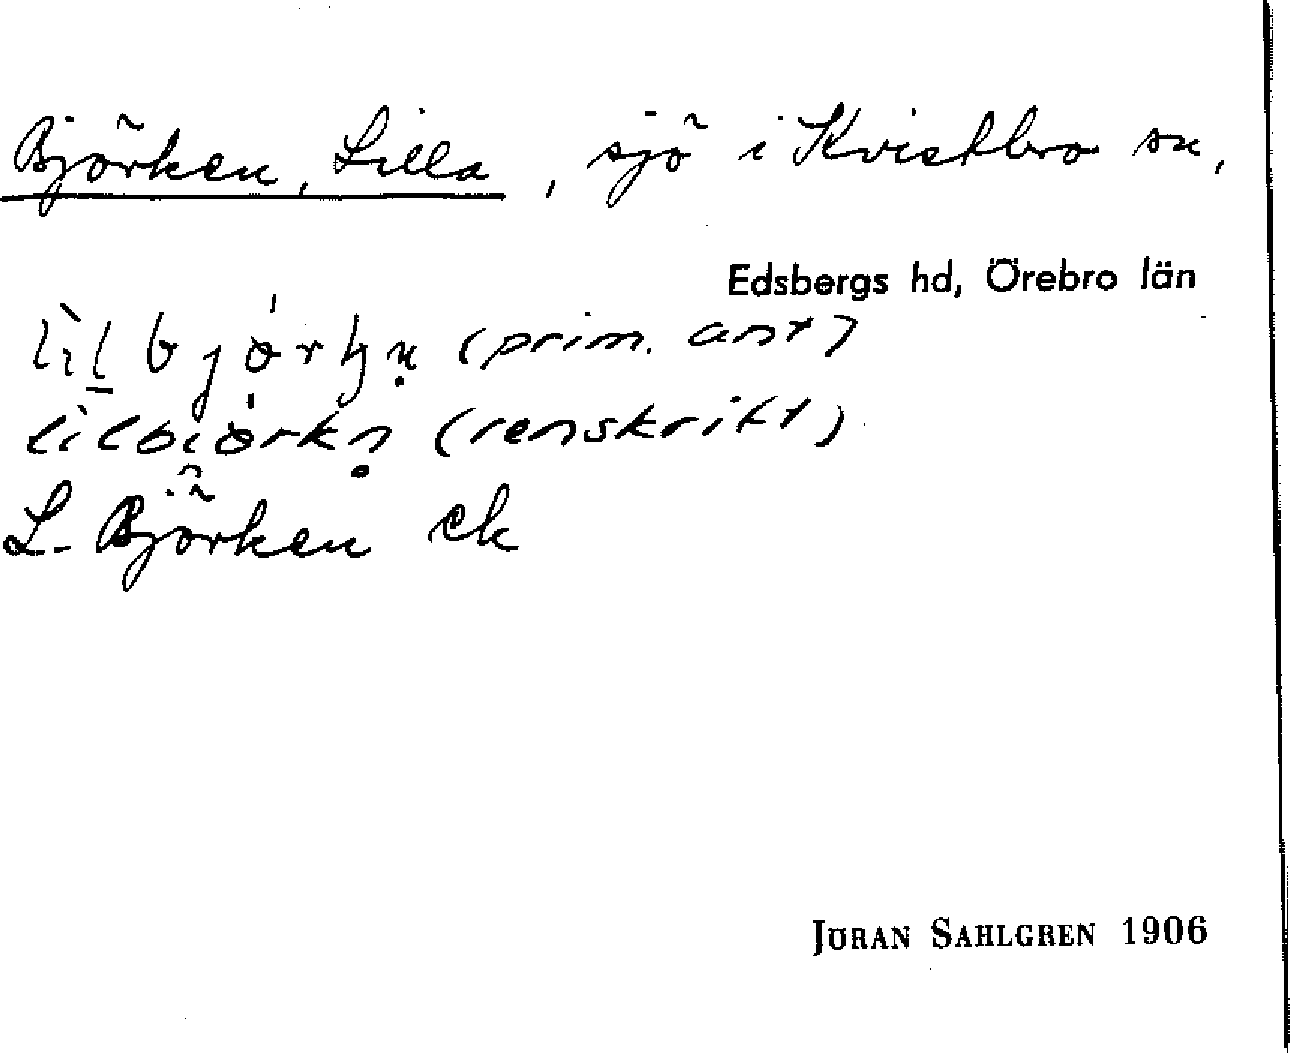 Björken, Lilla, sjö i Kvistbro sn,
Edsbergs hd, Örebro län
(prim. ant)
(renskrikt)
L. Björken ek
JÖRAN SAHLGREN 1906